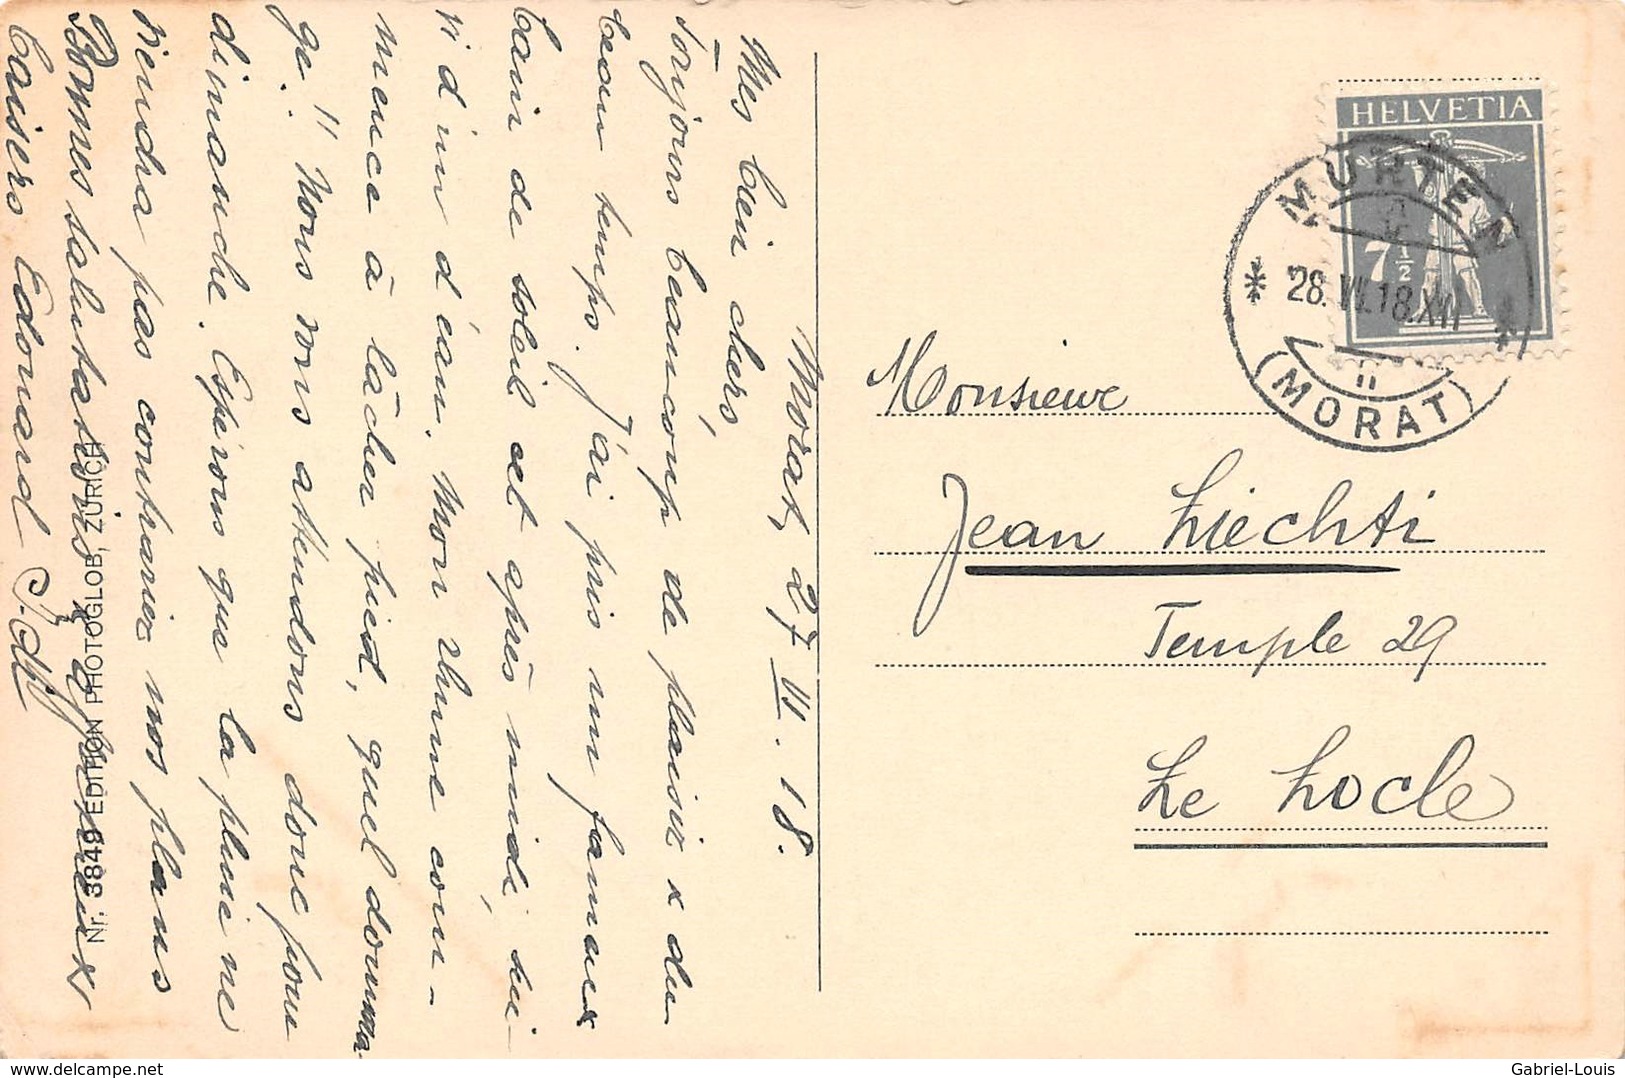 Morat, 27 VI. 18.
Mes bien chers,
Toujours beaucoup de plaisir & du
beau temps. J'ai pris un fameux
bain de soleil et après midi, sui-
vi d'un d'eau. Mon rhume com-
mence à lâcher pied, quel domma-
ge." Nous vous attendons donc pour
dimanche. Espérons que la pluie ne
viendra pas contrarier nos plans
Bonnes salutations &
baisers Edouard
Nr. 3849 EDITION PHOTOGLOB, ZÜRICH
HELVETIA
7 1/2
MURTEN
28. VI. 18. XII
II
(MORAT)
Monsieur
Jean Liechti
Temple 29
Le Locle
delcampe.net
Gabriel-Louis